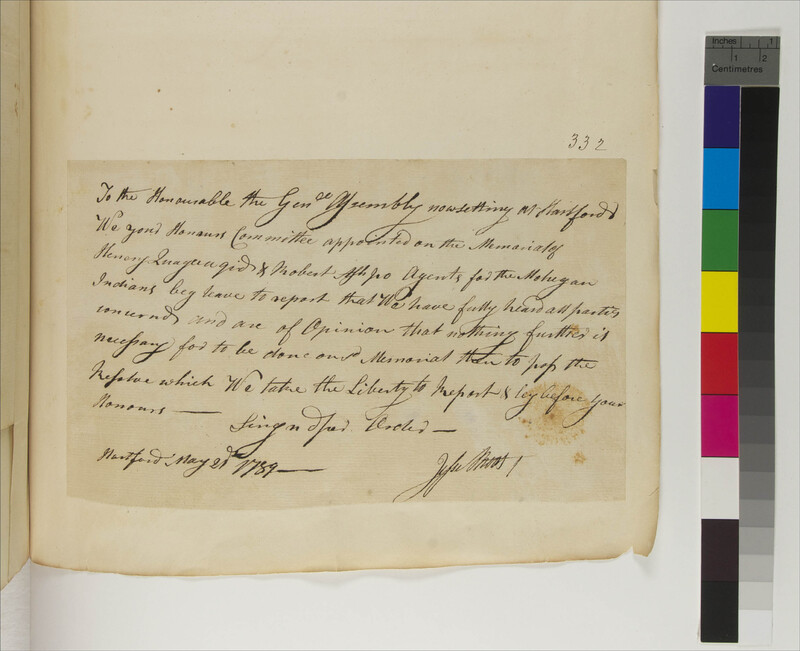 Inches 1
1 2
Centimetres
332
To the Honourable the Genll Assembly now setting at Hartford
We your Honours Committee appointed on the Memorial of
Henery Quaquaquid & Robert Ashpo Agents for the Mohegan
Indians beg leave to report that We have fully heard all parties
concernd and are of Opinion that nothing further is
necessary for to be done on sd Memorial than to pass the
Resolve which We take the Liberty to Report & ley before your
Honours —
Singnd per Order —
Hartford May 21st 1789 —